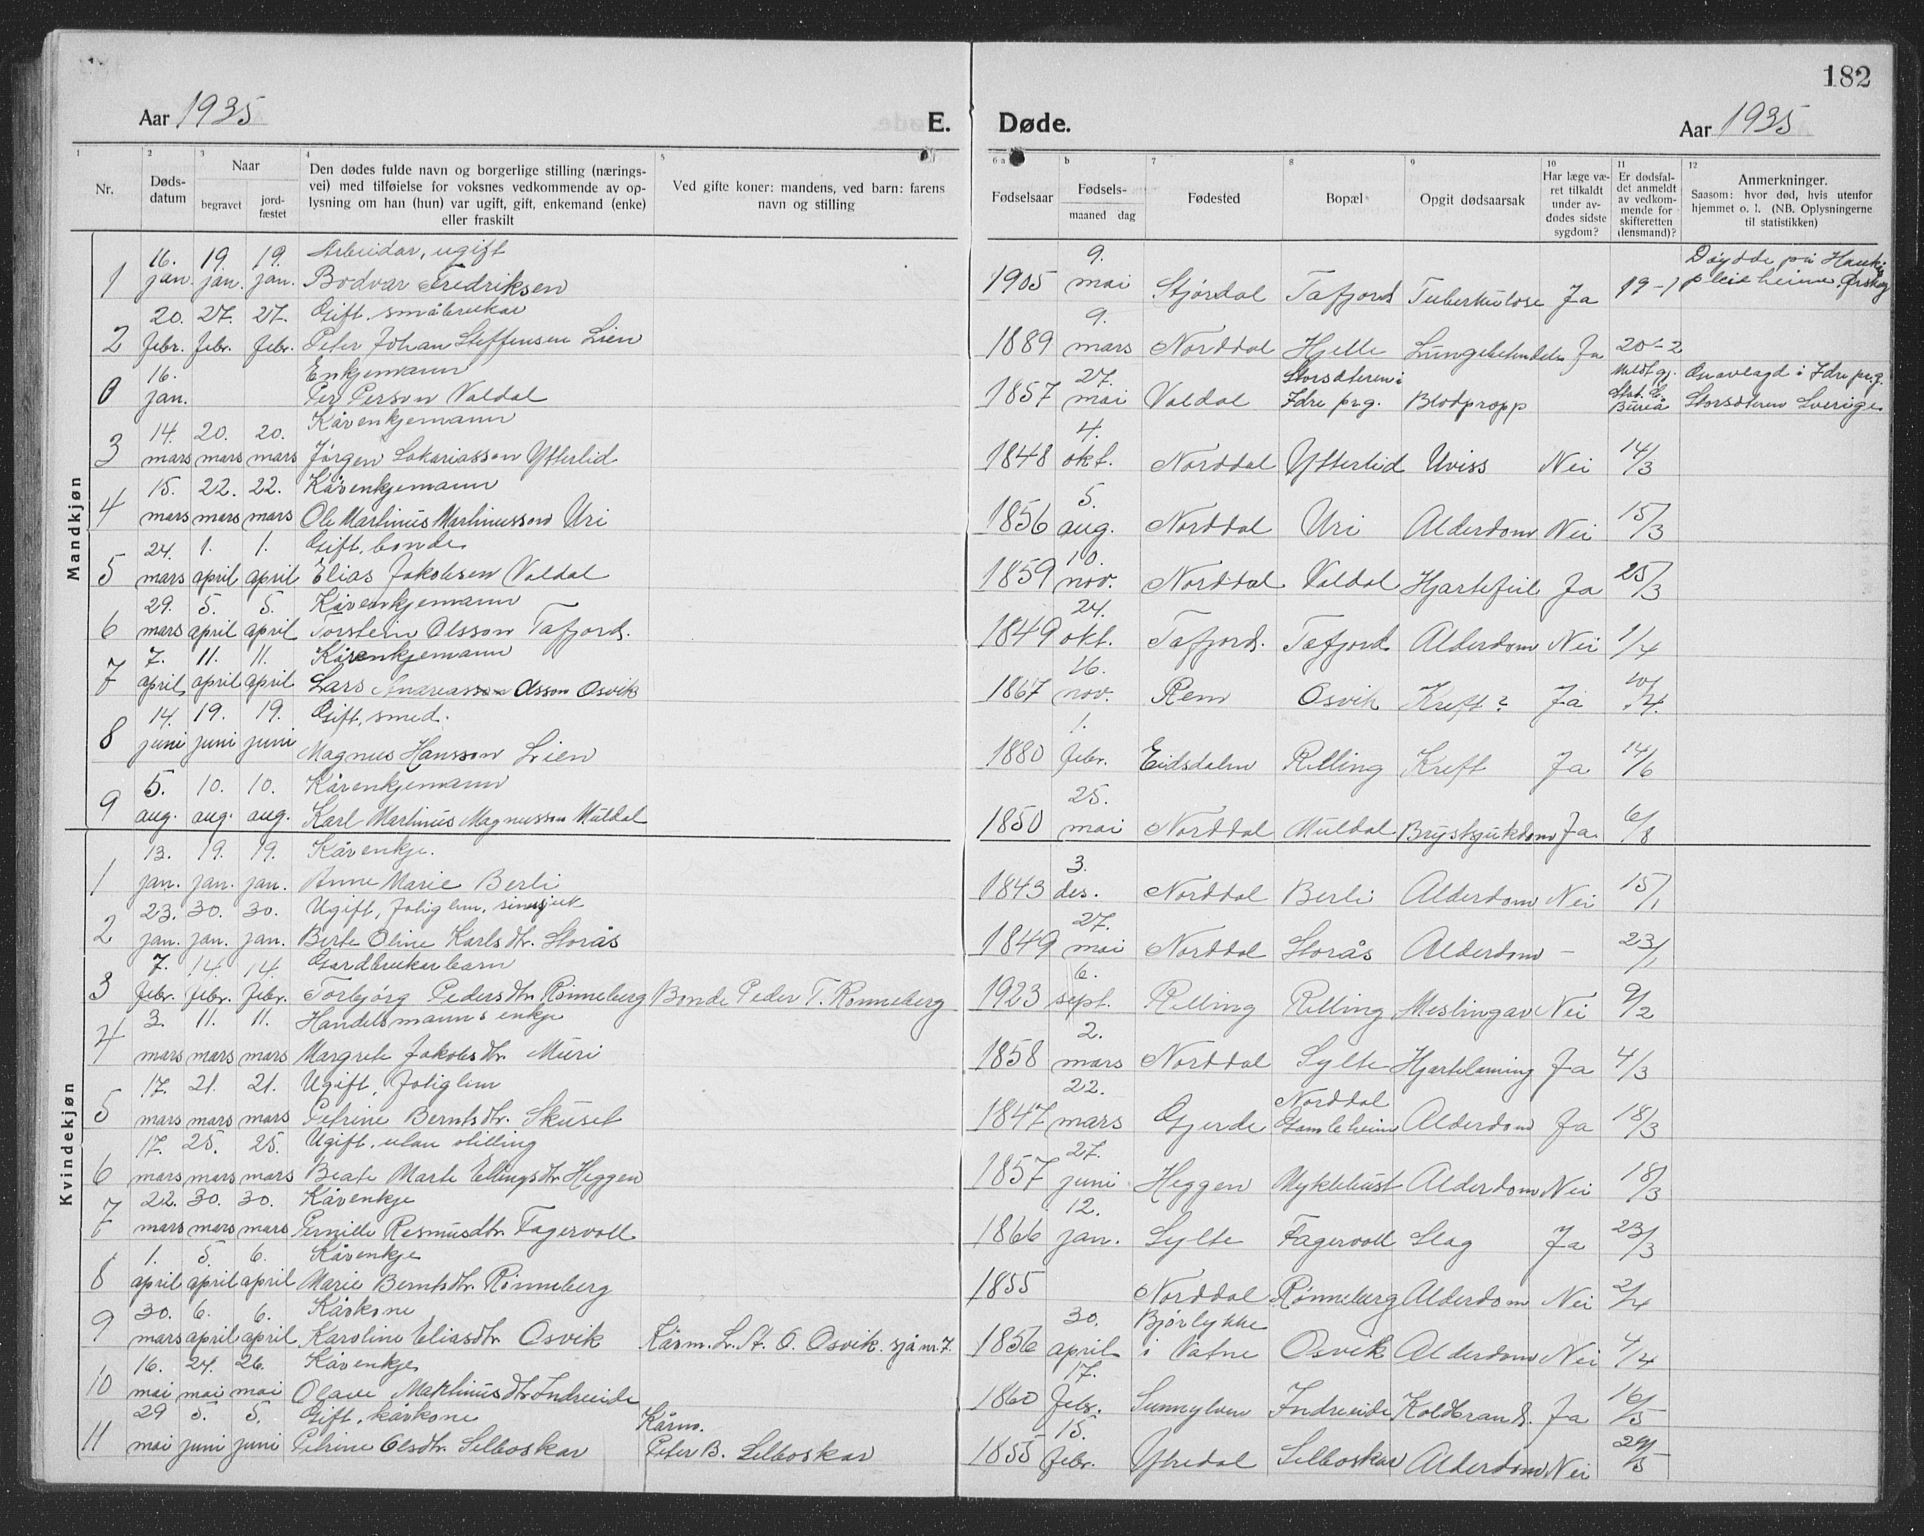 182
Aar 1935 E. Døde. Aar 1935
1 2 3 4 5 6 a b 7 8 9 10 11 12
Nr.
Døds-
datum
Naar
begravet
jord-
fæstet
Den dødes fulde navn og borgerlige stilling (nærings-
vei) med tilføielse for voksnes vedkommende av op-
lysning om han (hun) var ugift, gift, enkemand (enke)
eller fraskilt
Ved gifte koner: mandens, ved barn: farens
navn og stilling
Fødselsaar
Fødsels-
maaned dag
Fødested
Bopæl
Opgit dødsaarsak
Har læge væ-
ret tilkaldt
under av-
dødes sidste
sygdom?
Er dødsfal-
det anmeldt
av vedkom-
mende for
skifteretten
(lensmand)?
Anmerkninger.
Saasom: hvor død, hvis utenfor
hjemmet o. l. (NB. Oplysningerne
til statistikken)
Mandkjøn
16. 19. 19. Arbeidar, ugift 9. Døydde på
1 jan. jan. jan. Bodvar Fredriksen 1905 mai Stjørdal Tafjord Tuberkulose Ja 19-1 pleieheime Ørskog
20. 27. 27. Gift, småbrukar 9.
2 febr. febr. febr. Peter Johan Steffensen Lien 1889 mars Norddal Hjelle Ja 20-2
16. Enkjemann 27. Storsäteren i Meldt gj. i Idre pr.g.
0 jan. Per Person Valdal 1857 mai Valdal Idre pr.g. Blodpropp Stat. C. Bureå Storsäteren Sverige
14. 20. 20. Kårenkjemann 4.
3 mars mars mars Jørgen Sakariasson Ytterlid 1848 okt. Norddal Ytterlid Uviss Nei 14/3
15. 22. 22. Kårenkjemann 5.
4 mars mars mars Ole Martinus Martinusson Uri 1856 aug. Norddal Uri Alderdom Nei 15/3
24. 1. 1. Gift, bonde 10.
5 mars april april Elias Jakobsen Valdal 1859 nov. Norddal Valdal Hjartefeil Ja 25/3
29. 5. 5. Kårenkjemann 24.
6 mars april april Torstein Olsson Tafjord. 1849 okt. Tafjord. Tafjord Alderdom Nei 1/4
7. 11. 11. Kårenkjemann 16.
7 april april april Lars Andreasson Olsson Osvik 1867 nov. Rem Osvik Kreft? Ja 10/4.
14. 19. 19. Gift, smed. 1.
8 juni juni juni Magnus Hansson Lien 1880 febr. Eidsdalen Relling Kreft Ja 14/6
5. 10. 10. Kårenkjemann 25.
9 aug. aug. aug. Karl Martinus Magnusson Muldal 1850 mai Norddal Muldal Brystsjukdom Ja 6/8
Kvindekjøn
13. 19. 19. Kårenkje. 3.
1 jan. jan. jan. Anne Marie Berli 1843 des. Norddal Berli Alderdom Nei 15/1
23. 30. 30. Ugift, fatiglem, sinnsjuk 27.
2 jan. jan. jan. Berte Oline Karlsdtr. Storås 1849 mai Norddal Storås Alderdom - 23/1
7. 14. 14. Gardbrukarbarn 6.
3 febr. febr. febr. Torbjørg Pedersdtr. Rønneberg Bonde Peder T. Rønneberg 1923 sept. Relling Relling Meslingar Nei 9/2
3. 11. 11. Handelsmanns enkje 2.
4 mars mars mars Margrete Jakobsdtr. Muri 1858 mars Norddal Sylte Hjartelaming Ja 4/3
17. 21. 21. Ugift, fatiglem 22. Norddal
5 mars mars mars Petrine Berntsdtr. Skuset 1847 mars Gjerde Gamleheim Alderdom Ja 18/3
17. 25. 25. Ugift, utan stilling 27.
6 mars mars mars Beate Marte Ellingsdtr. Heggen 1857 juni Heggen Myklebust Alderdom Nei 18/3
22. 30. 30. Kårenkje 12.
7 mars mars mars Pernille Rasmusdtr. Fagervoll 1866 jan. Sylte Fagervoll Slag Ja 23/3
1. 5. 6. Kårenkje
8 april april april Marie Berntsdtr. Rønneberg 1855 Norddal Rønneberg Alderdom Nei 2/4
30. 6. 6. Kårkone 30. Bjørlykke
9 mars april april Karoline Eliasdtr. Osvik Kårm. L. A. O. Osvik sjå nr. 7 1856 april i Vatne Osvik Alderdom Nei 4/4
16. 24. 26. Kårenkje 17.
10 mai mai mai Olave Martinusdtr. Indreeide 1860 febr. Sunnylven Indreeide Koldbrand. Ja 16/5
29 5. 5. Gift, kårkone Kårm. 15.
11 mai juni juni Petrine Olsdtr. Selboskar Peter B. Selboskar 1855 febr. Ytredal Selboskar Alderdom Nei 29/5